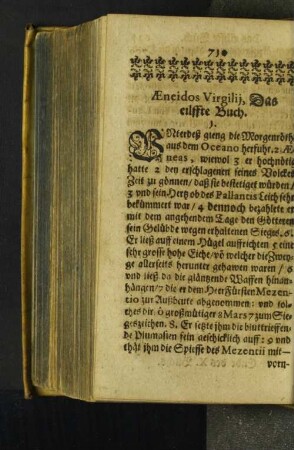 710
Æneidos Virgilij, Das
eilffte Buch.
1.
Nterdeß gieng die Morgenröth
aus dem Oceano herfuhr. 2 Æ
neas, wiewol 3 er hochnöti
hatte 2 den erschlagenen seines Volckes
Zeit zu gönnen/ daß sie bestetiget würden/
3 und sein Hertz ob des Pallantis Leich sehr
bekümmert war/ 4 dennoch bezahlete er
mit dem angehendem Tage den Göttern
sein Gelübde wegen erhaltenen Sieges. 5.
Er ließ auff einem Hügel auffrichten 5 eine
sehr grosse hohe Eiche/ võ welcher die Zwey-
ge allerseits herunter gehawen waren/ 6
und ließ da die gläntzende Waffen hinan
hängen/ 7 die er dem HeerFürsten Mezen-
tio zur Außbeute abgenommen: und sol-
ches dir ô großmütiger 8 Mars 7 zum Sie-
geszeichen. 8. Er setzte ihm die bluttrieffen-
de Plumasien fein geschicklich auff: 9 und
thät ihm die Spiesse des Mezentii mit-
vorn-